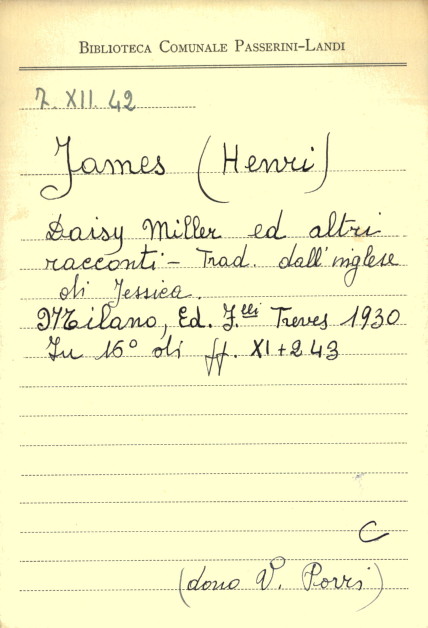 BIBLIOTECA COMUNALE PASSERINI-LANDI
7. XII. 42
James (Henri)
Daisy Miller ed altri
racconti - Trad. dall'inglese
di Jessica.
Milano, Ed. F.lli Treves 1930
In 16° di ff. XI+243
C
(dono V. Porri)